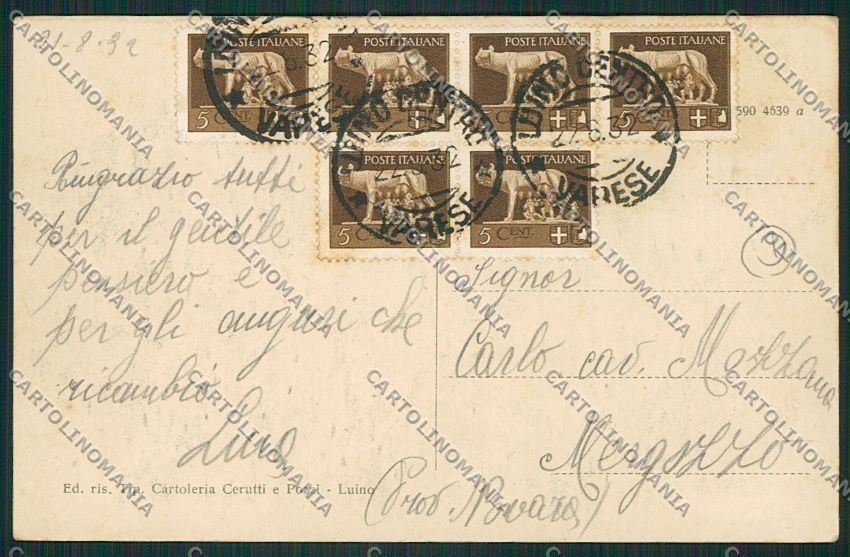 21-8-32
POSTE ITALIANE
5 CENT.
POSTE ITALIANE
5 CENT.
POSTE ITALIANE
5 CENT.
POSTE ITALIANE
5 CENT.
POSTE ITALIANE
5 CENT.
POSTE ITALIANE
5 CENT.
LUINO CENTRO
22.8.32
VARESE
LUINO CENTRO
22.8.32
VARESE
LUINO CENTRO
22.8.32
VARESE
590 4639 a
Ringrazio tutti
per il gentile
pensiero e
per gli auguri che
ricambio
Signor
Carlo cav. Mazzana
Mergozzo
(Prov. Novara)
Ed. ris. Tip. Cartoleria Cerutti e Pozzi - Luino
CARTOLINOMANIA